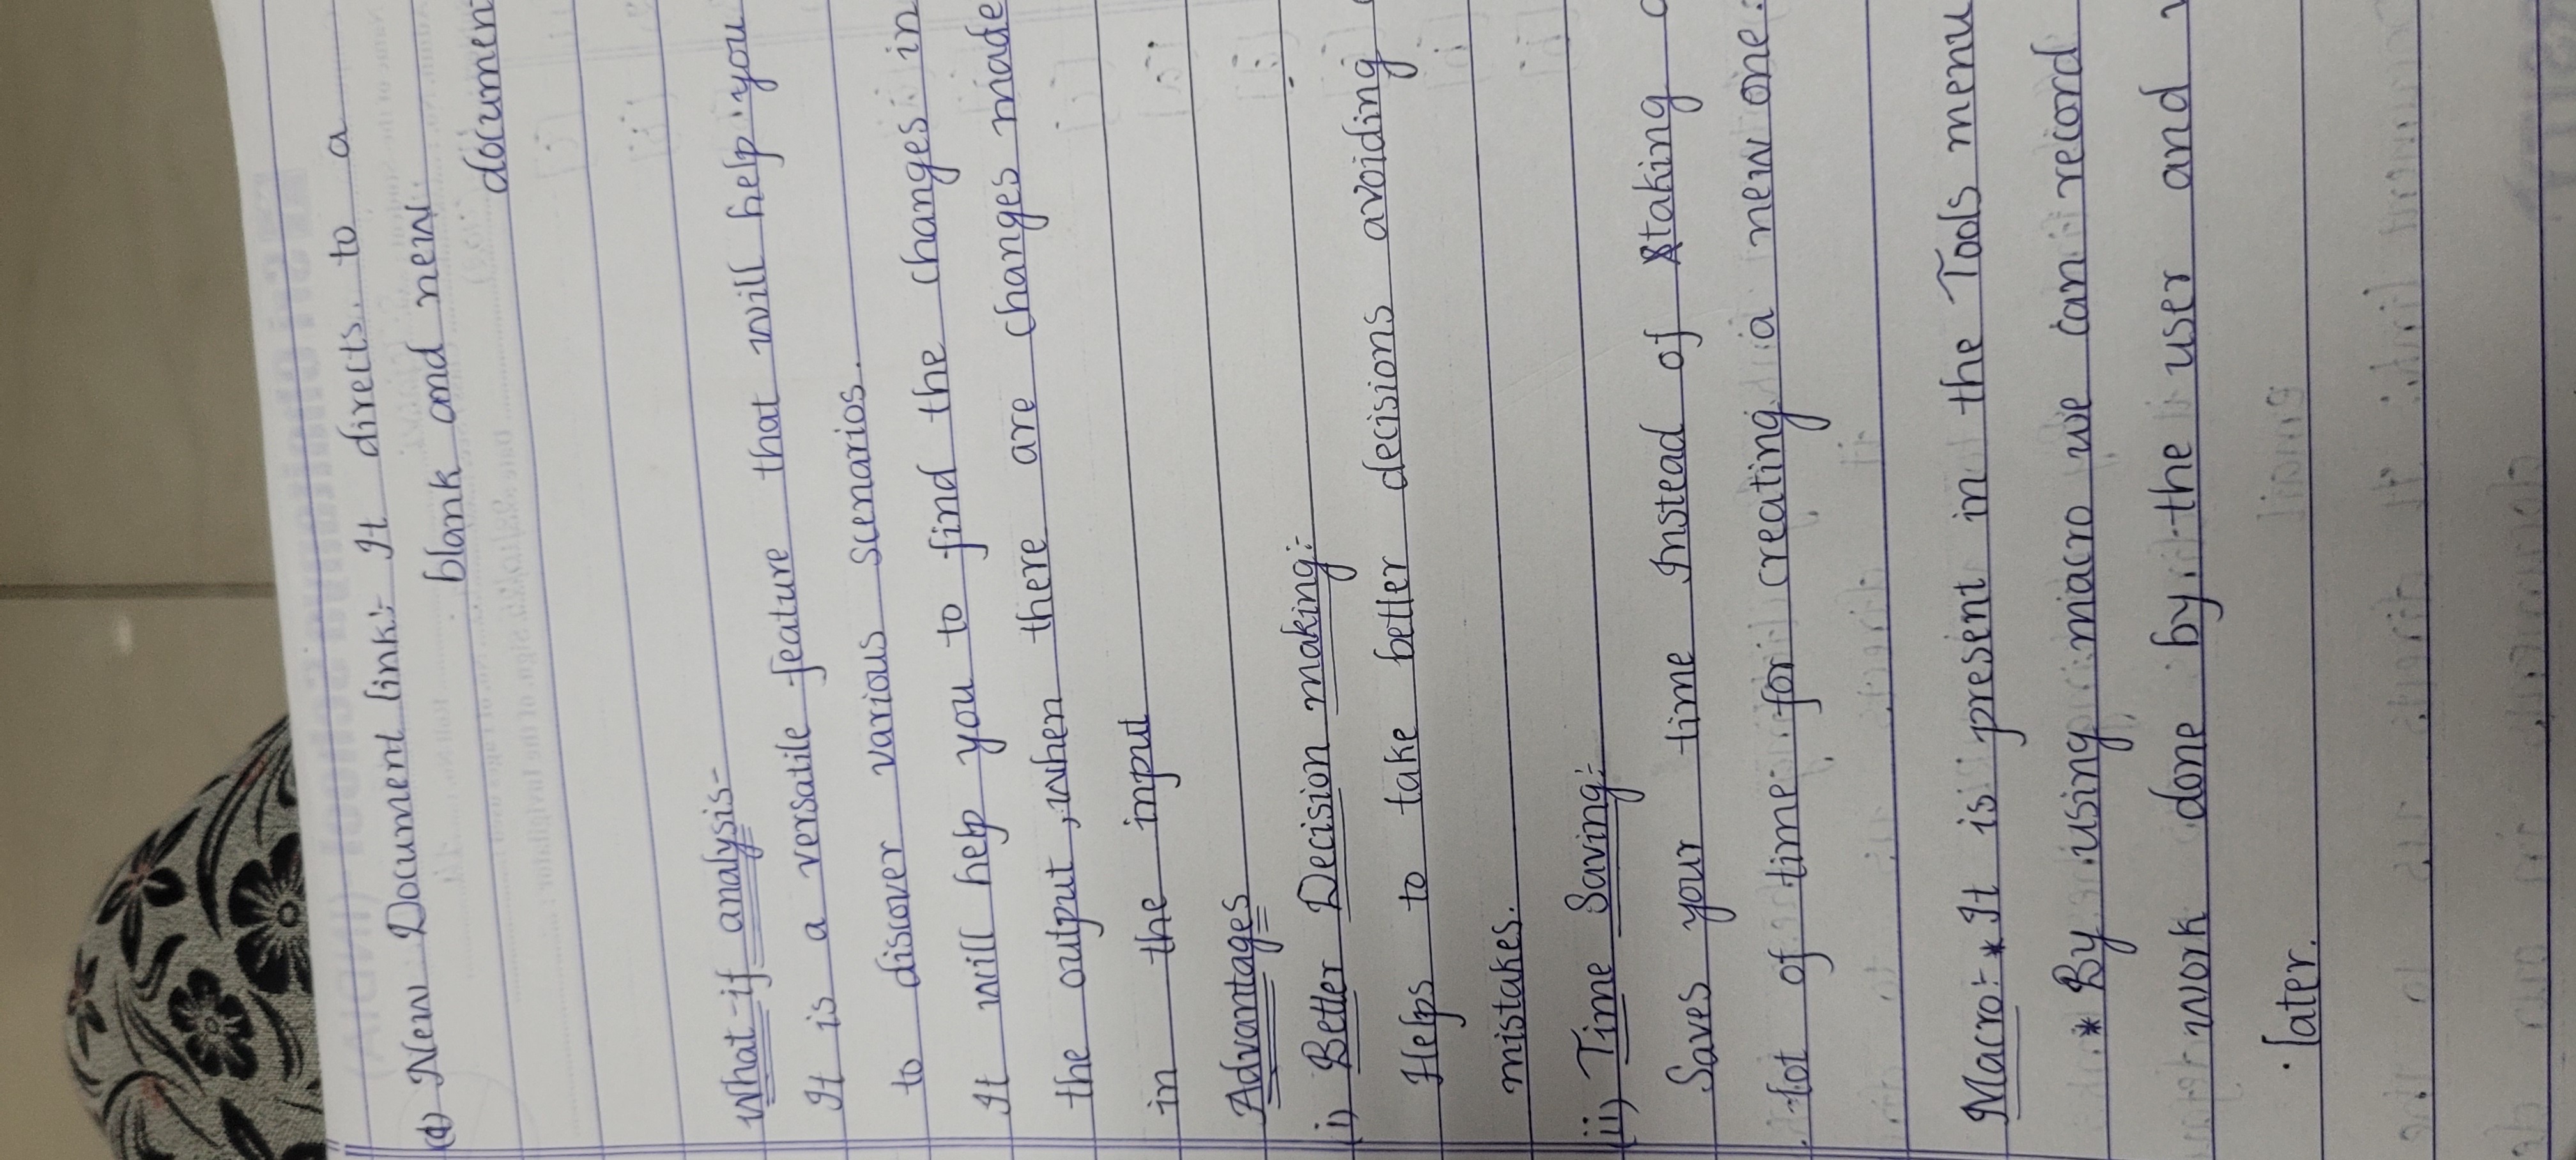 (d) New Document link:- It directs to a
blank and new
document
What-if analysis-
It is a versatile feature that will help you
to discover various scenarios.
It will help you to find the changes in
the output, when there are changes made
in the input
Advantages
(i) Better Decision making:-
Helps to take better decisions avoiding
mistakes.
(ii) Time Saving:-
Saves your time Instead of taking
lot of time for creating a new one.
Macro:- * It is present in the Tools menu
* By using macro we can record
work done by the user and
later.